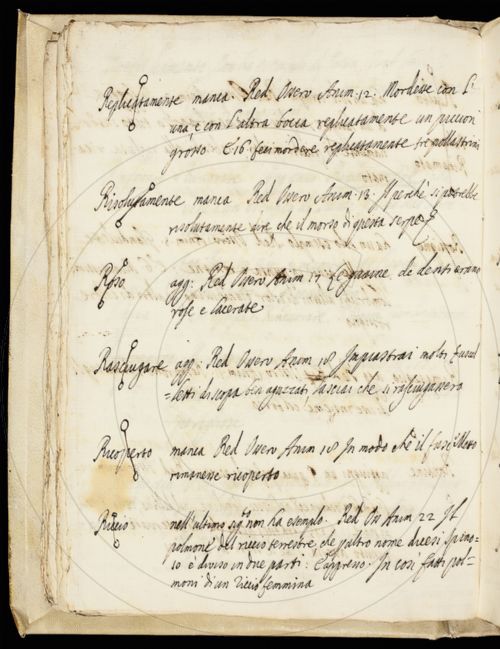 Replicatamente manca. Red. Osserv. Anim. 12. Mordesse con l'
una, e con l'altra bocca replicatamente un piccion
grosso. E 16. feci mordere replicatamente tre pollastrini
Risolutamente manca Red. Osserv. Anim. 13. Il perché si potrebbe
risolutamente dire che il morso di questa serpe &
Roso agg: Red. Osserv. Anim. 17 Le guaine de denti erano
rose e lacerate
Rasciugare agg: Red. Osserv. Anim. 18 Impiastrai molti fuscel
=letti di scopa ben aguzzati lasciai che si rasciugassero
Ricoperto manca Red. Osserv. Anim 18 In modo che il fuscelletto
rimanesse ricoperto
Riccio nell'ultimo sig.to non ha esemplo. Red. Os. Anim. 22 Il
polmone del riccio terrestre, che per altro nome dicesi spino=
=so è diviso in due parti: E appresso. In così fatti pol=
=moni di un riccio femmina